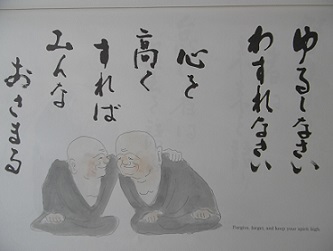 ゆるしなさい
わすれなさい
心を
高く
すれば
みんな
おさまる
Forgive, forget, and keep your spirit high.